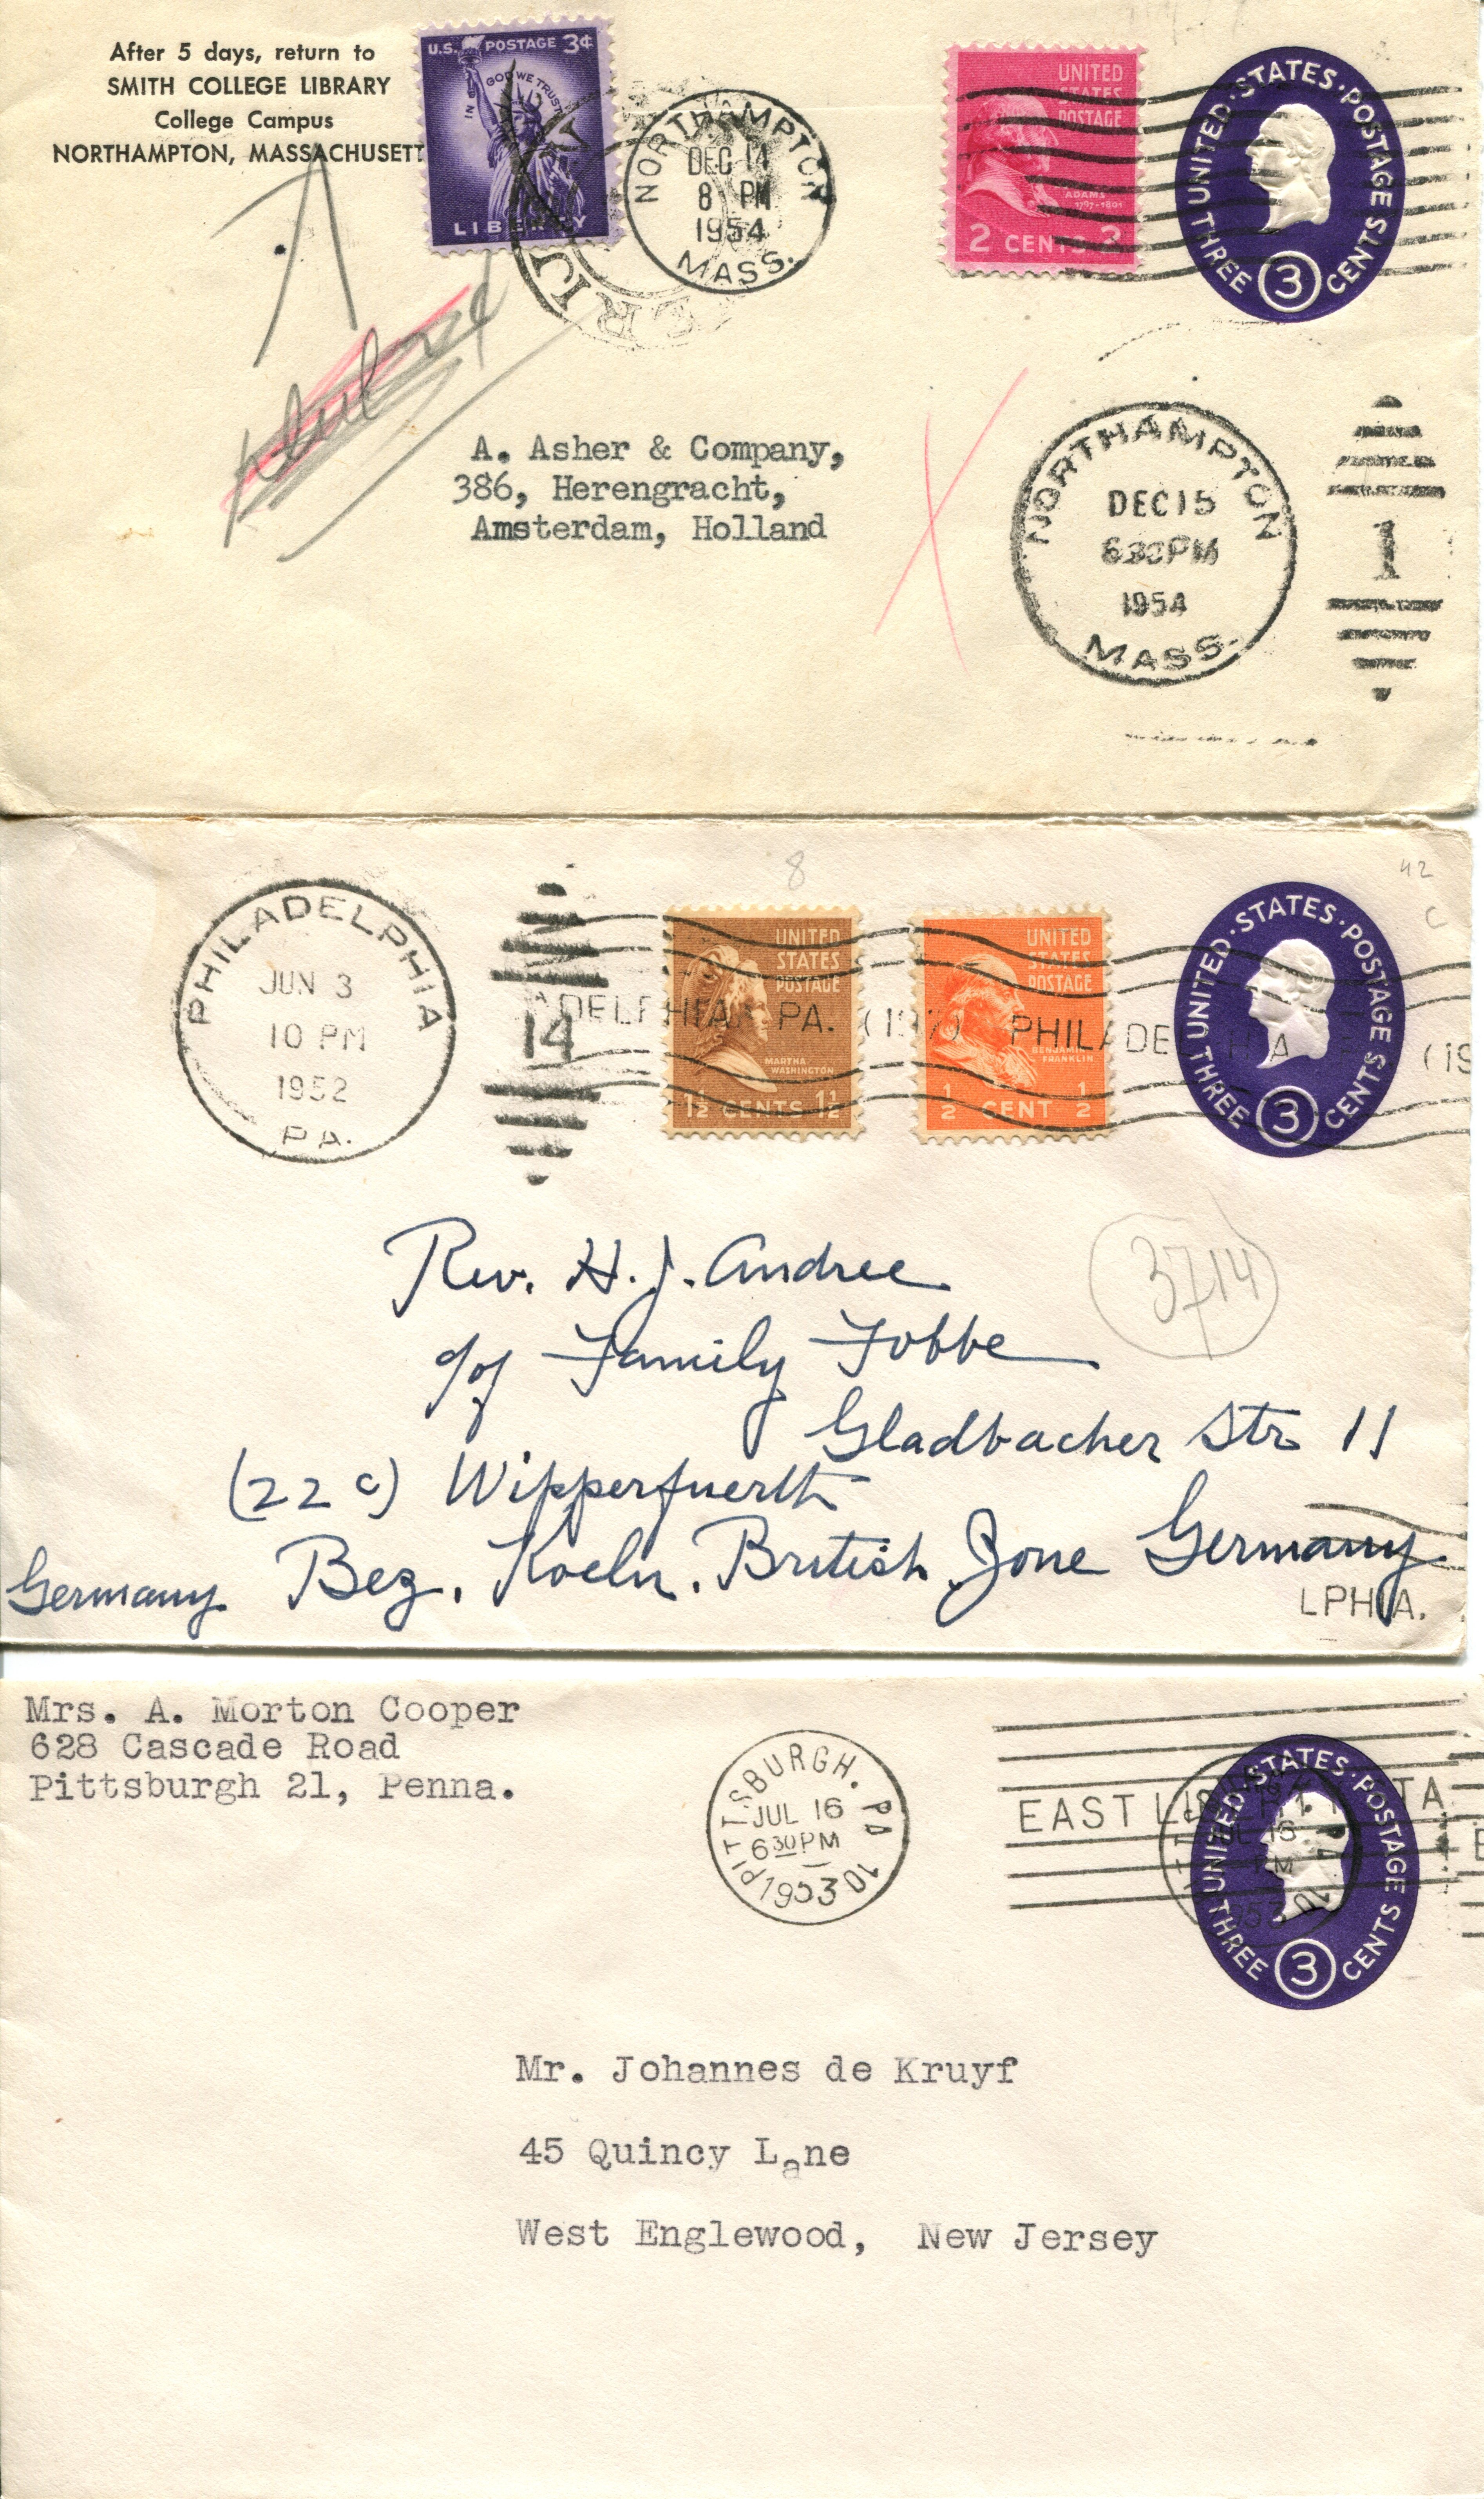 After 5 days, return to
SMITH COLLEGE LIBRARY
College Campus
NORTHAMPTON, MASSACHUSETT
U.S. POSTAGE 3¢
IN GOD WE TRUST
LIBERTY
NORTHAMPTON
DEC 14
8 PM
1954
MASS.
UNITED
STATES
POSTAGE
ADAMS
1797-1801
2 CENTS 2
UNITED·STATES·POSTAGE
THREE 3 CENTS
A. Asher & Company,
386, Herengracht,
Amsterdam, Holland
NORTHAMPTON
DEC 15
630PM
1954
MASS.
1
PHILADELPHIA
JUN 3
10 PM
1952
PA.
14
8
42
C
ADELPHIA, PA. (197) PHILADELPHIA (19
UNITED
STATES
POSTAGE
MARTHA
WASHINGTON
1½ CENTS 1½
UNITED
STATES
POSTAGE
BENJAMIN
FRANKLIN
½ CENT ½
UNITED·STATES·POSTAGE
THREE 3 CENTS
3714
Rev. H. J. Andree
c/o Family Fobbe
Gladbacher Str 11
(22 c) Wipperfuerth
Germany Bez. Koeln. British Zone Germany
LPHIA.
Mrs. A. Morton Cooper
628 Cascade Road
Pittsburgh 21, Penna.
PITTSBURGH. PA 10
JUL 16
630PM
1953
EAST LIBERTY STA
UNITED·STATES·POSTAGE
THREE 3 CENTS
Mr. Johannes de Kruyf
45 Quincy Lane
West Englewood, New Jersey